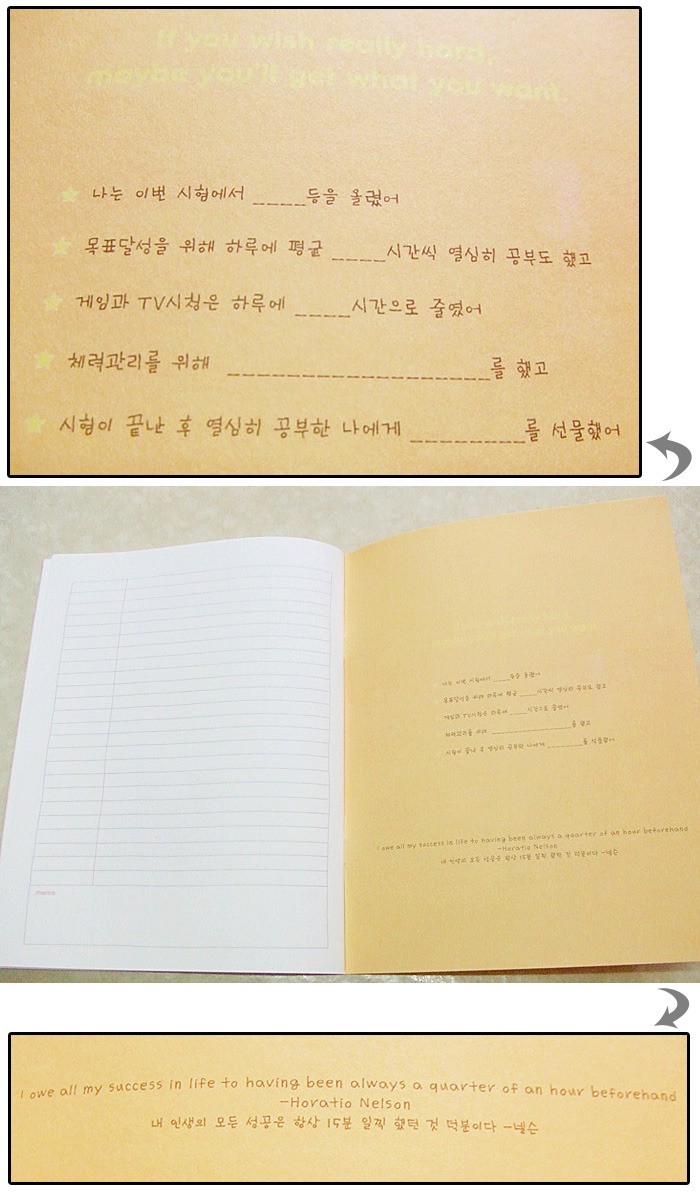 If you wish really hard,
maybe you'll get what you want.
나는 이번 시험에서 _____등을 올렸어
목표달성을 위해 하루에 평균 _____시간씩 열심히 공부도 했고
게임과 TV시청은 하루에 _____시간으로 줄였어
체력관리를 위해 ________________________를 했고
시험이 끝난 후 열심히 공부한 나에게 ___________를 선물했어
memo
나는 이번 시험에서 _____등을 올렸어
목표달성을 위해 하루에 평균 _____시간씩 열심히 공부도 했고
게임과 TV시청은 하루에 _____시간으로 줄였어
체력관리를 위해 ________________________를 했고
시험이 끝난 후 열심히 공부한 나에게 ___________를 선물했어
I owe all my success in life to having been always a quarter of an hour beforehand
-Horatio Nelson
내 인생의 모든 성공은 항상 15분 일찍 했던 것 덕분이다 -넬슨
I owe all my success in life to having been always a quarter of an hour beforehand
-Horatio Nelson
내 인생의 모든 성공은 항상 15분 일찍 했던 것 덕분이다 -넬슨